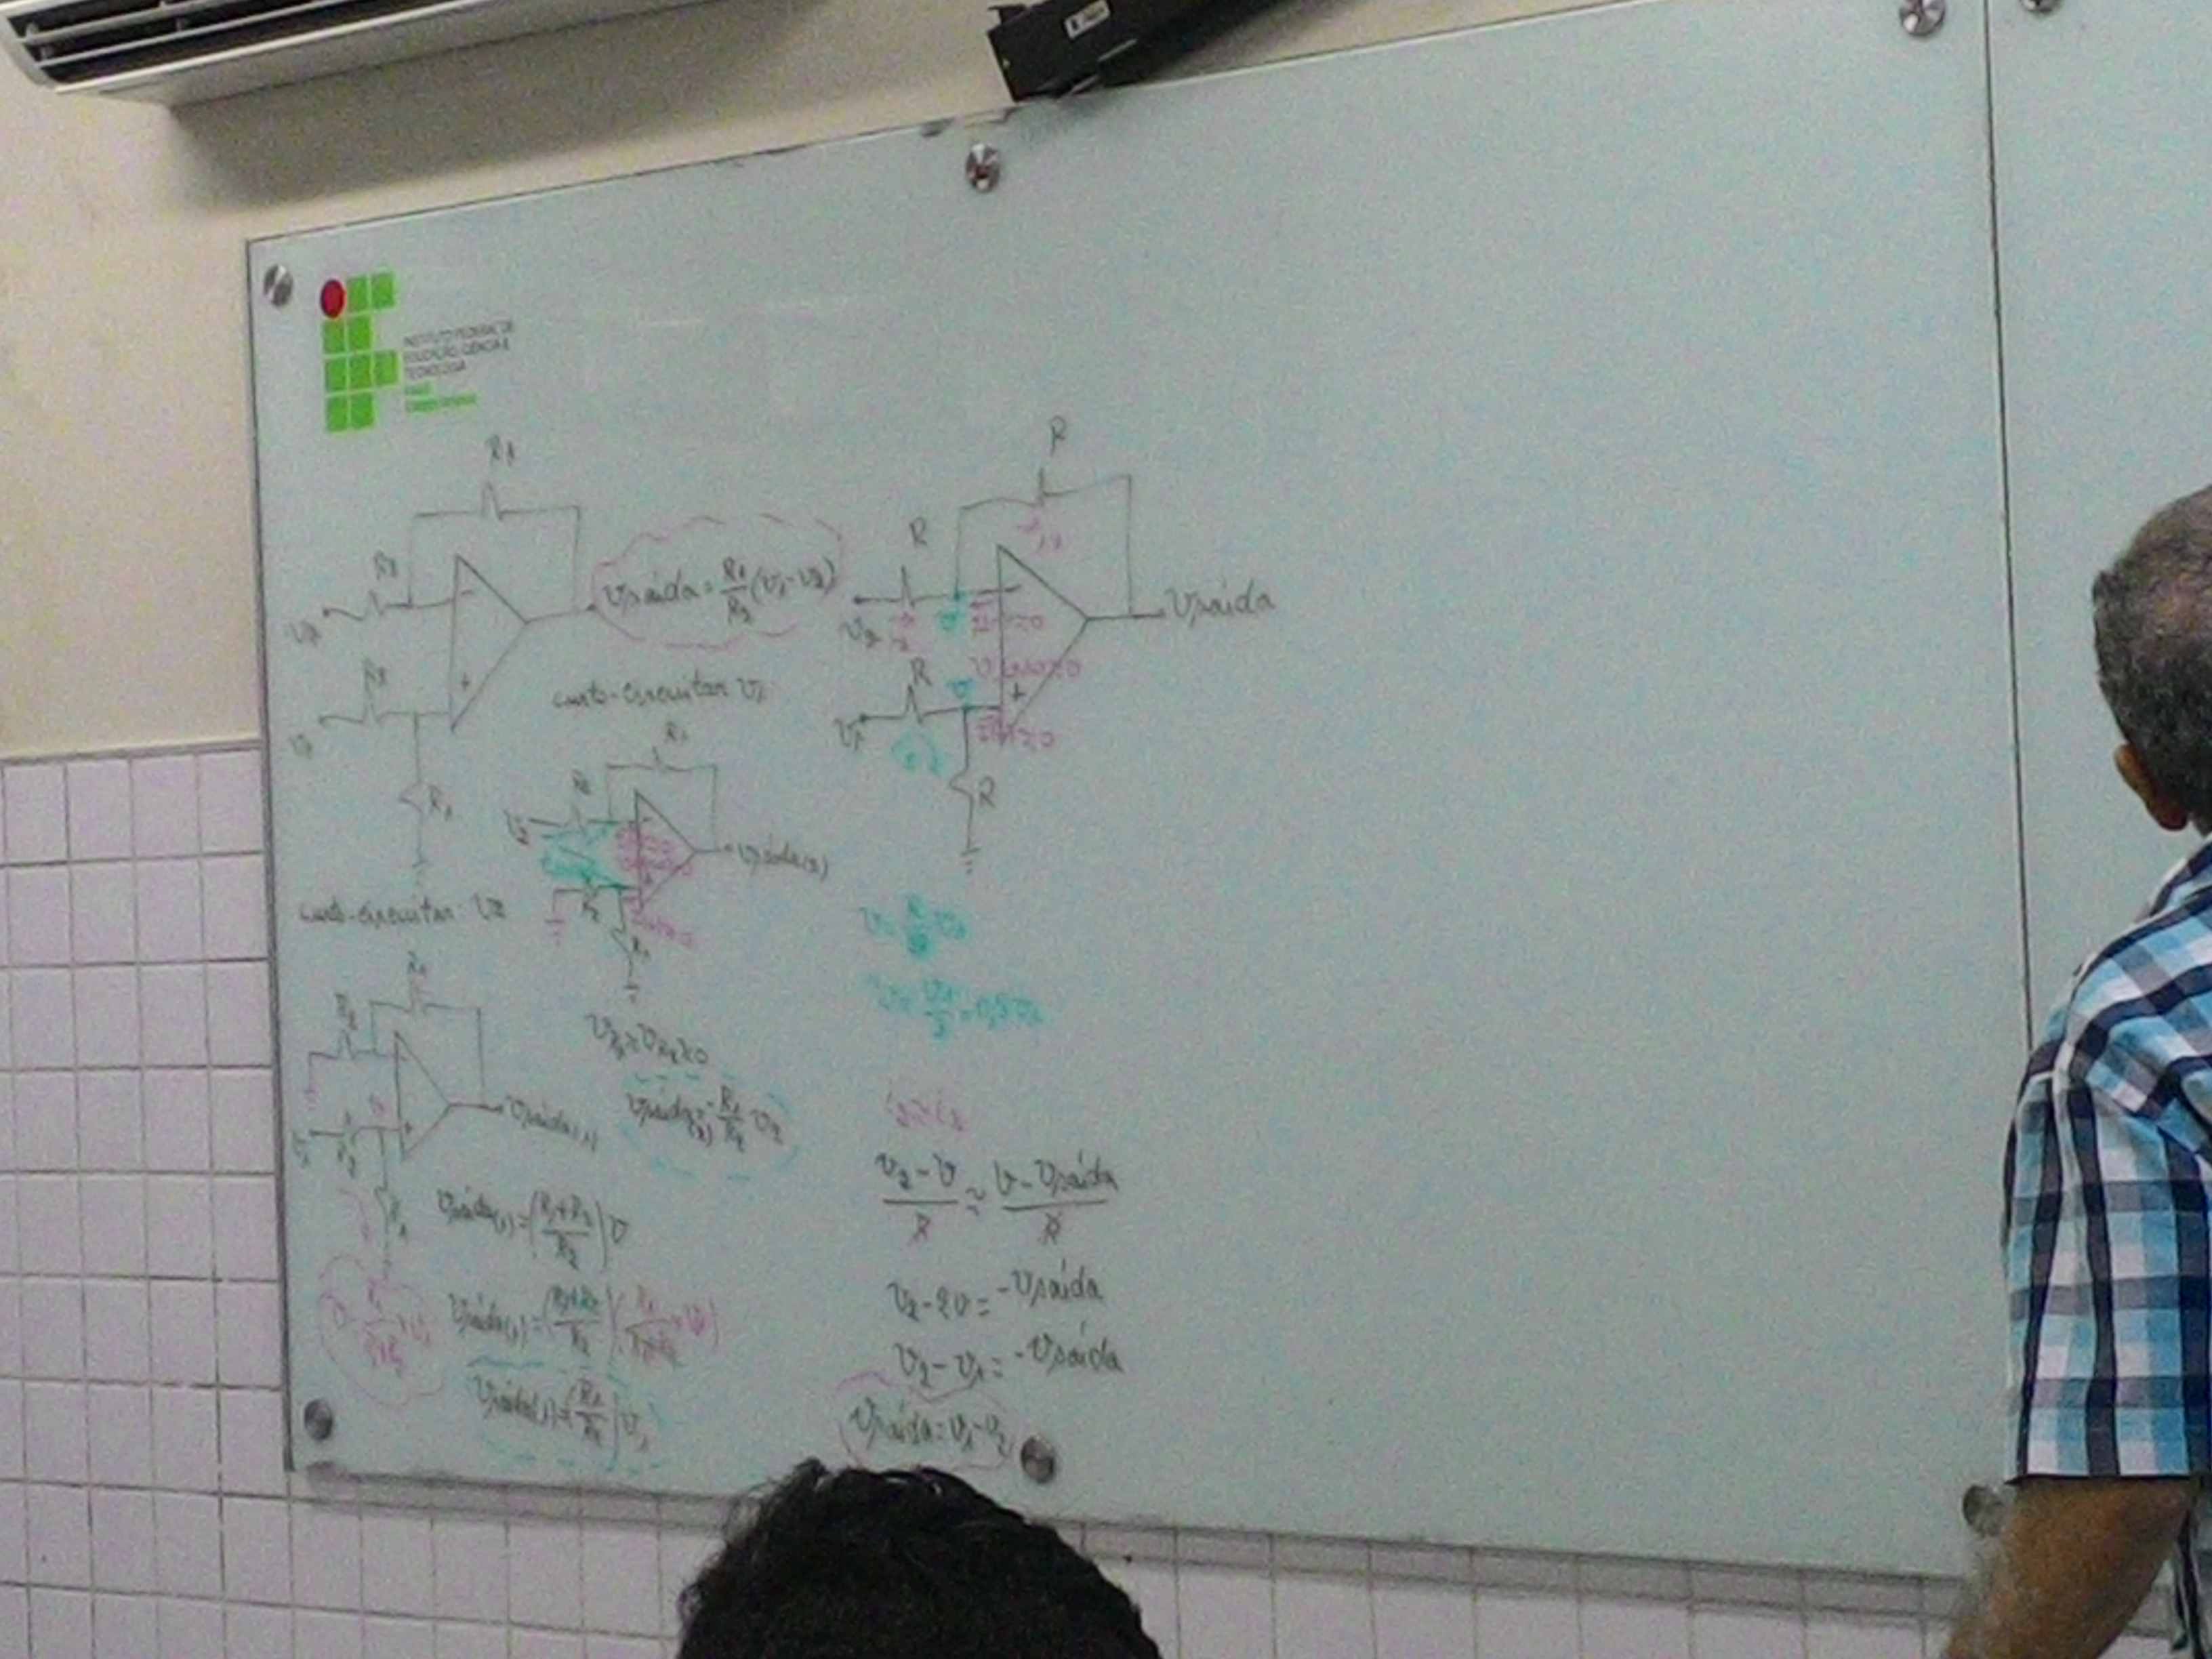 INSTITUTO FEDERAL DE
EDUCAÇÃO, CIÊNCIA E
TECNOLOGIA
R1
R2
v2
R2
v1
R1
vsaída = R1/R2 (v1 - v2)
curto-circuitar v1
R1
R2
v2
vsaída(2)
R2
R1
vR1 ≅ vR2 ≅ 0
vsaída(2) = -R1/R2 v2
curto-circuitar v2
R1
R2
v
v1
R2
R1
vsaída(1)
vsaída(1) = (R1+R2/R2) v
v = R1/R1+R2 × v1
vsaída(1) = (R1+R2/R2)(R1/R1+R2 × v1)
vsaída(1) = (R1/R2) v1
R
R
v2
v
R
v
v1
R
vsaída
v = R/2R v1
v = v1/2 = 0,5v1
v2 - v/R ≅ v - vsaída/R
v2 - 2v = -vsaída
v2 - v1 = -vsaída
vsaída = v1 - v2